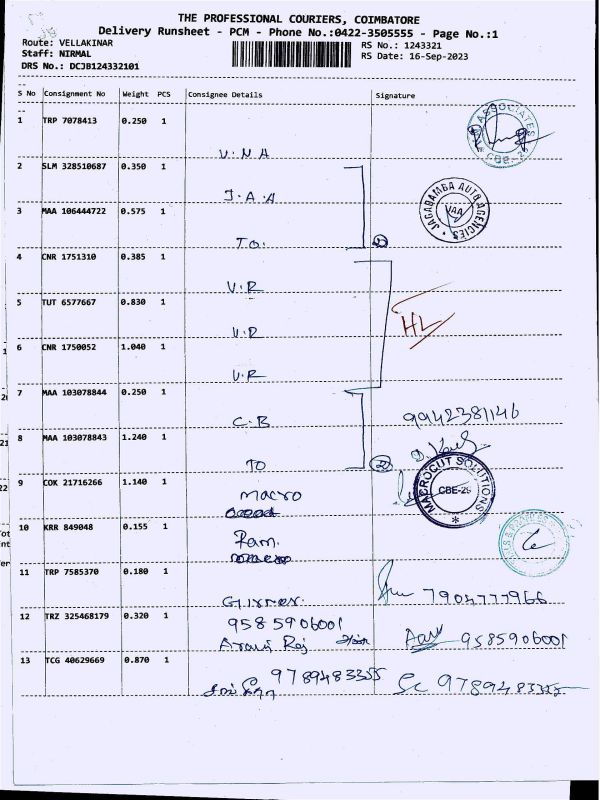 THE PROFESSIONAL COURIERS, COIMBATORE
Delivery Runsheet - PCM - Phone No.:0422-3505555 - Page No.:1
Route: VELLAKINAR
RS No.: 1243321
Staff: NIRMAL
RS Date: 16-Sep-2023
DRS No.: DCJB124332101
S No Consignment No Weight PCS Consignee Details Signature
1 TRP 7078413 0.250 1
V.N.A
ASSOCIATES
CBE-29
2 SLM 328510687 0.350 1
J.A.A
JAGADAMBA AUTO AGENCIES
3 MAA 106444722 0.575 1
TO. 2
4 CNR 1751310 0.385 1
V.R
5 TUT 6577667 0.830 1
V.R
HL
6 CNR 1750052 1.040 1
V.R
7 MAA 103078844 0.250 1
C.B
9942381146
8 MAA 103078843 1.240 1
TO 2
9 COK 21716266 1.140 1
macro
MACROCUT SOLUTIONS
CBE-29
10 KRR 849048 0.155 1
Ram.
11 TRP 7585370 0.180 1
7904777966
12 TRZ 325468179 0.320 1
9585906001
9585906001
13 TCG 40629669 0.870 1
9789483355
9789483355